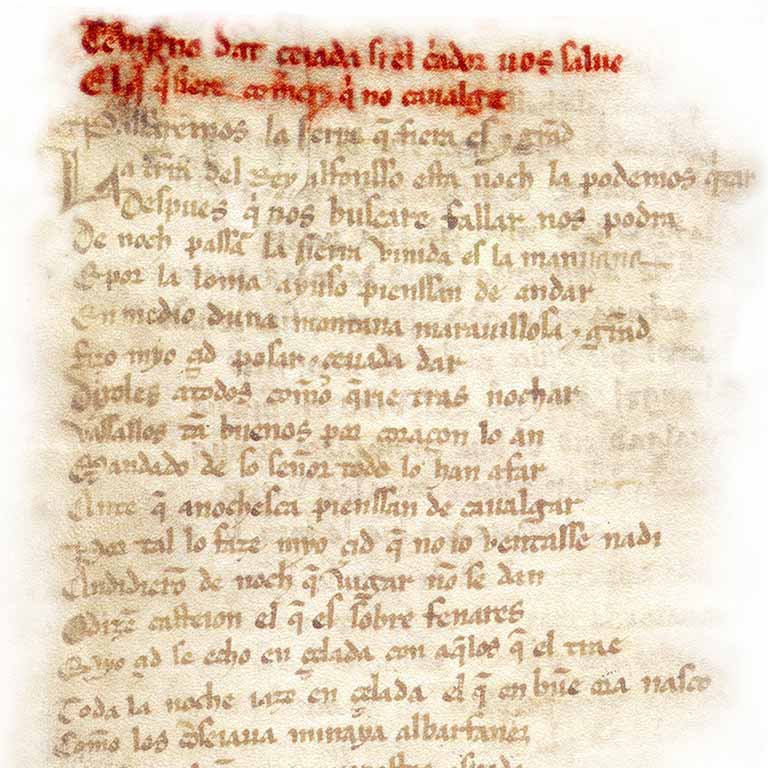 Temprano dat ceuada si el c̃ador uos salue
El q̃ q̃siere comer q̃ no caualge
Passaremos la sierra q̃ fiera es ⁊ grãd
La tr̃ra del Rey alfonsso esta noch la podemos q̃tar
Despues q̃ nos buscare fallar nos podra
De noch passã la sierra vinida es la mannana
E por la loma ayuso pienssan de andar
En medio duna montana marauillosa ⁊ grãd
fizo myo çid posar ⁊ ceuada dar
Dixoles atodos com̃o q̃rie tras nochar
vassallos tã buenos por coraçon lo an
Mandado de so señor todo lo han afar
Ante q̃ anochesca pienssan de caualgar
Por tal lo faze myo çid q̃ no lo ventasse nadi
Andidierõ de noch q̃ vagar nõ se dan
Odizẽ casteion el q̃ es sobre fenares
Myo çid se echo en çelada con aq̃los q̃ el trae
Toda la noche iaze en çelada el q̃ en buẽ ora nasco
Com̃o los cõseiaua minaya albarfanez